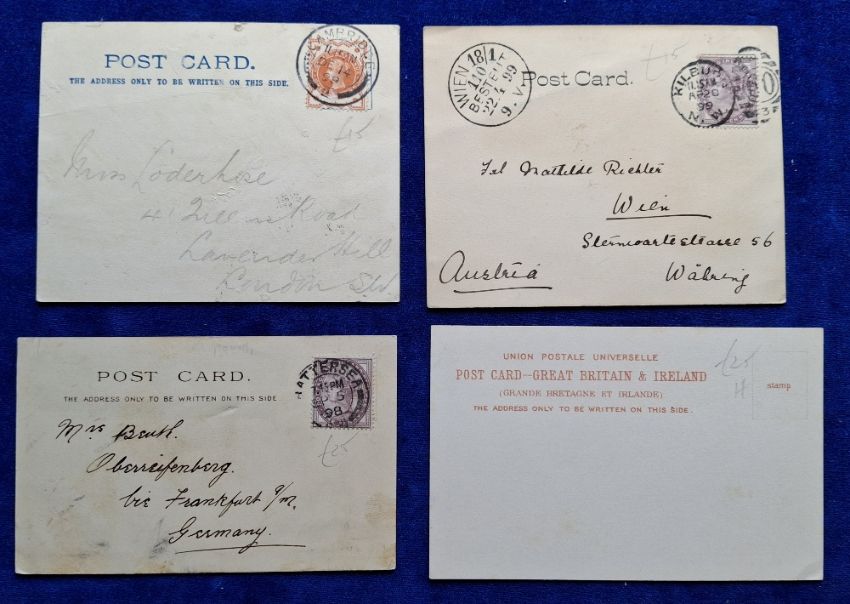 POST CARD.
THE ADDRESS ONLY TO BE WRITTEN ON THIS SIDE.
CAMBRIDGE
£15
Miss Löderhose
41 Road
Lavender Hill
London SW
Post Card.
£15
WIEN 18/1
110
BESTELLT
22.4.99
9.V
KILBURN
11.15PM
AP 20
99
N.W.
Frl Mathilde Richter
Wien
Sternwartestrasse 56
Austria
Währing
POST CARD.
THE ADDRESS ONLY TO BE WRITTEN ON THIS SIDE
BATTERSEA
98
£25
Mrs Beuth.
Oberreifenberg.
bie Frankfurt a/m.
Germany.
UNION POSTALE UNIVERSELLE
POST CARD—GREAT BRITAIN & IRELAND
(GRANDE BRETAGNE ET IRLANDE)
THE ADDRESS ONLY TO BE WRITTEN ON THIS SIDE.
£25
H
stamp